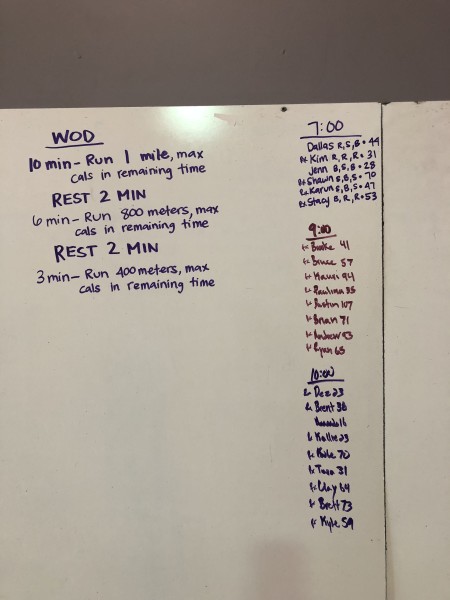 WOD
10 min- Run 1 mile, max
cals in remaining time
REST 2 MIN
6 min- Run 800 meters, max
cals in remaining time
REST 2 MIN
3 min- Run 400 meters, max
cals in remaining time
7:00
Dallas R,S,B• 44
Rx Kim R,R,R• 31
Jenn B,S,B• 28
Rx Shawn S,B,S• 70
Rx Karun S,B,S• 47
Rx Stacy B,R,R•53
9:00
Rx Brooke 41
Rx Bruce 57
Rx 94
Rx Paulina 35
Rx 107
Rx Brian 71
Rx Andrew 93
Rx Ryan 63
10:00
Rx Dez 23
Rx Brent 38
Amanda 16
Rx Kallie 23
Rx 70
Rx Tara 31
Rx Clay 64
Rx Brett 73
Rx Kyle 59